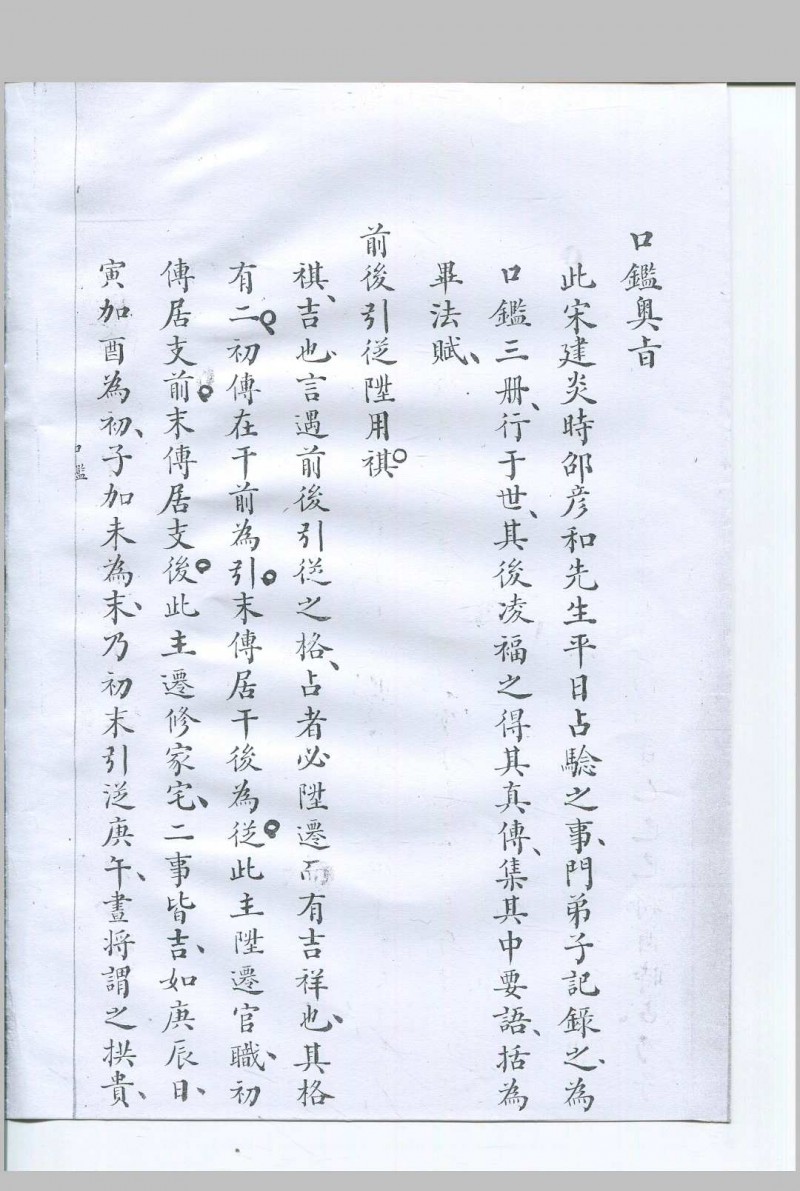 口鑑奧旨
此宋建炎時邵彦和先生平日占驗之事、門弟子記錄之、為
口鑑三册、行于世、其後凌福之得其真傳、集其中要語、括為
畢法賦、
前後引從陞用祺。
祺、吉也、言遇前後引從之格、占者必陞遷而有吉祥也、其格
有二。初傳在干前為引。末傳居干後為從。此主陞遷官職、初
傳居支前。末傳居支後。此主遷修家宅、二事皆吉、如庚辰日、
寅加酉為初、子加未為末、乃初末引從庚午、晝將謂之拱貴、
口鑑